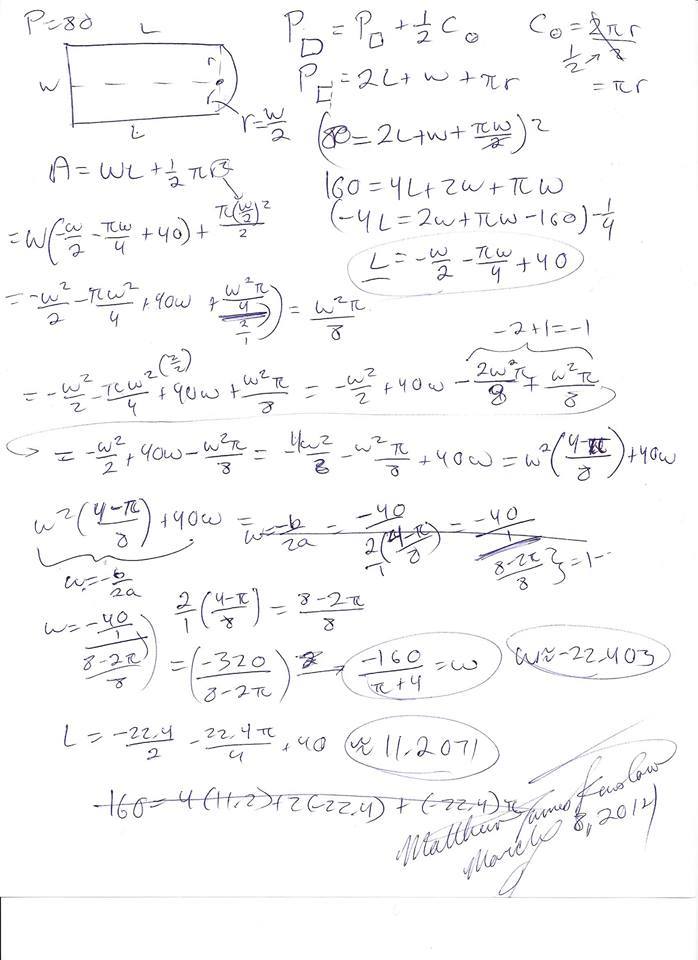 P=80
L
W
r
r
L
r=w/2
P = P + 1/2 C
C = 2πr/2
1/2
= πr
P = 2L + w + πr
(80 = 2L + w + πw/2) 2
A = WL + 1/2 πr²
160 = 4L + 2w + πw
= W(-w/2 - πw/4 + 40) + π(w/2)²/2
(-4L = 2w + πw - 160) -1/4
L = -w/2 - πw/4 + 40
= -w²/2 - πw²/4 + 40w + w²π/4 / 2/1 ) = w²π/8
-2+1=-1
= -w²/2 - πw²/4 (2/2) + 40w + w²π/8 = -w²/2 + 40w - 2w²π/8 + w²π/8
= -w²/2 + 40w - w²π/8 = -4w²/8 - w²π/8 + 40w = w²(4-π/8) + 40w
w²(4-π/8) + 40w = w = -b/2a = -40 / 2/1(4-π/8) = -40/1 / 8-2π/8 } = 1-
w = -b/2a
w = -40/1 / 8-2π/8 )
2/1 (4-π/8) = 8-2π/8
= (-320/8-2π) → -160/π+4 = w
w ≈ -22.403
L = -22.4/2 - 22.4π/4 + 40 ≈ 11.2071
160 = 4(11.2) + 2(-22.4) + (-22.4)π
Matthew James
March 8, 2014